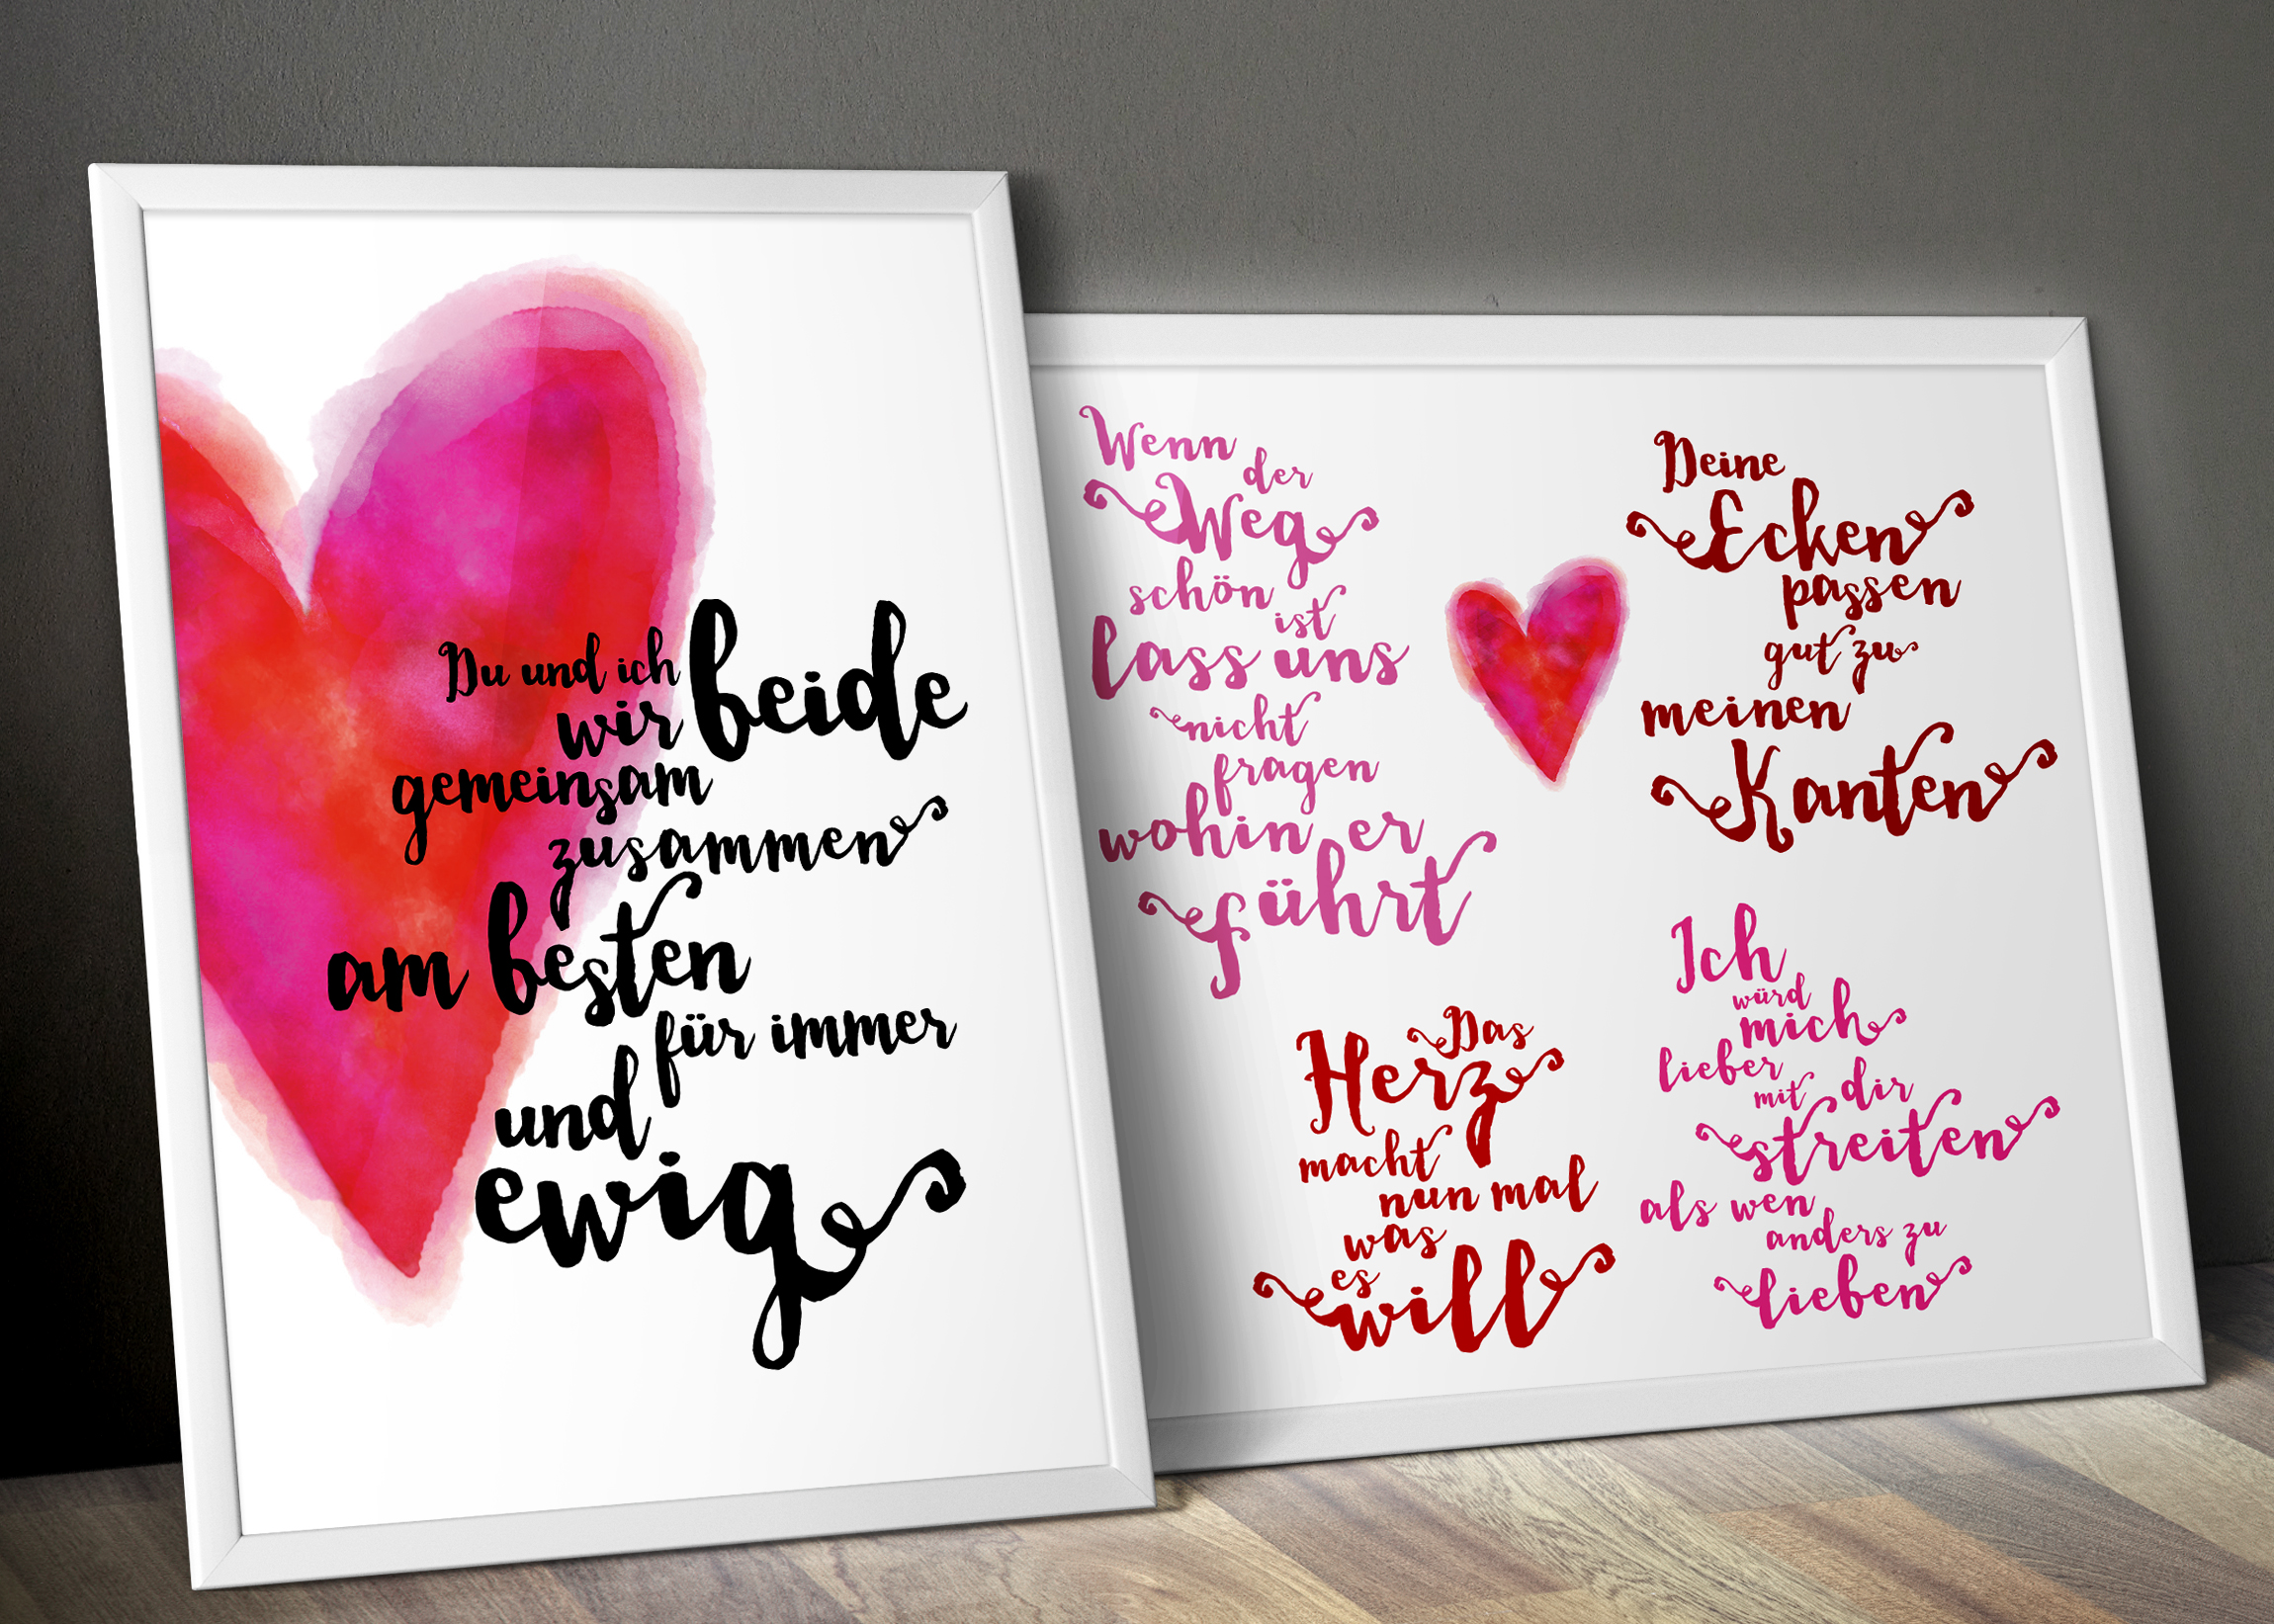 Du und ich
wir beide
gemeinsam
zusammen
am besten
für immer
und
ewig
Wenn
der
Weg
schön
ist
lass uns
nicht
fragen
wohin er
führt
Deine
Ecken
passen
gut zu
meinen
Kanten
Das
Herz
macht
nun mal
was
es
will
Ich
würd
mich
lieber
mit dir
streiten
als wen
anders zu
lieben